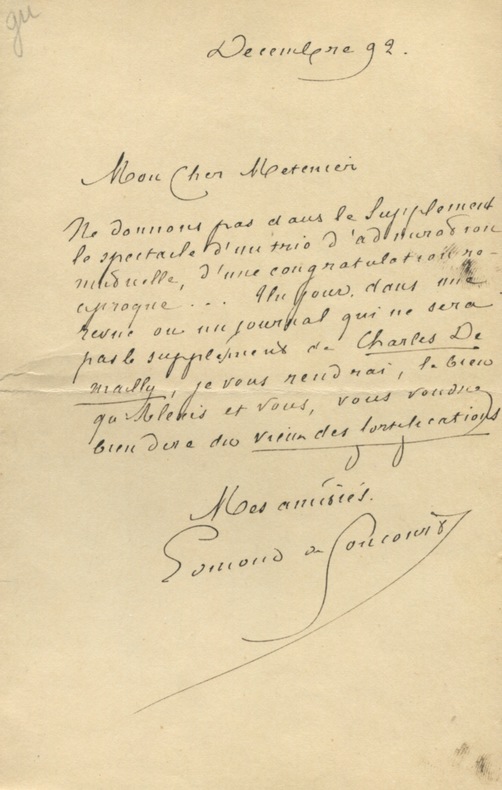 gu
Decembre 92.
Mon Cher Metenier
Ne donnons pas dans le Supplement
le spectacle d'un trio d'admiration
mutuelle, d'une congratulation re-
ciproque... Un jour, dans une
revue ou un journal qui ne sera
pas le supplement de Charles De
mailly, je vous rendrai, le bien
qu'Alexis et vous, vous voudrez
bien dire du vieux des fortifications
Mes amitiés.
Edmond de Goncourt